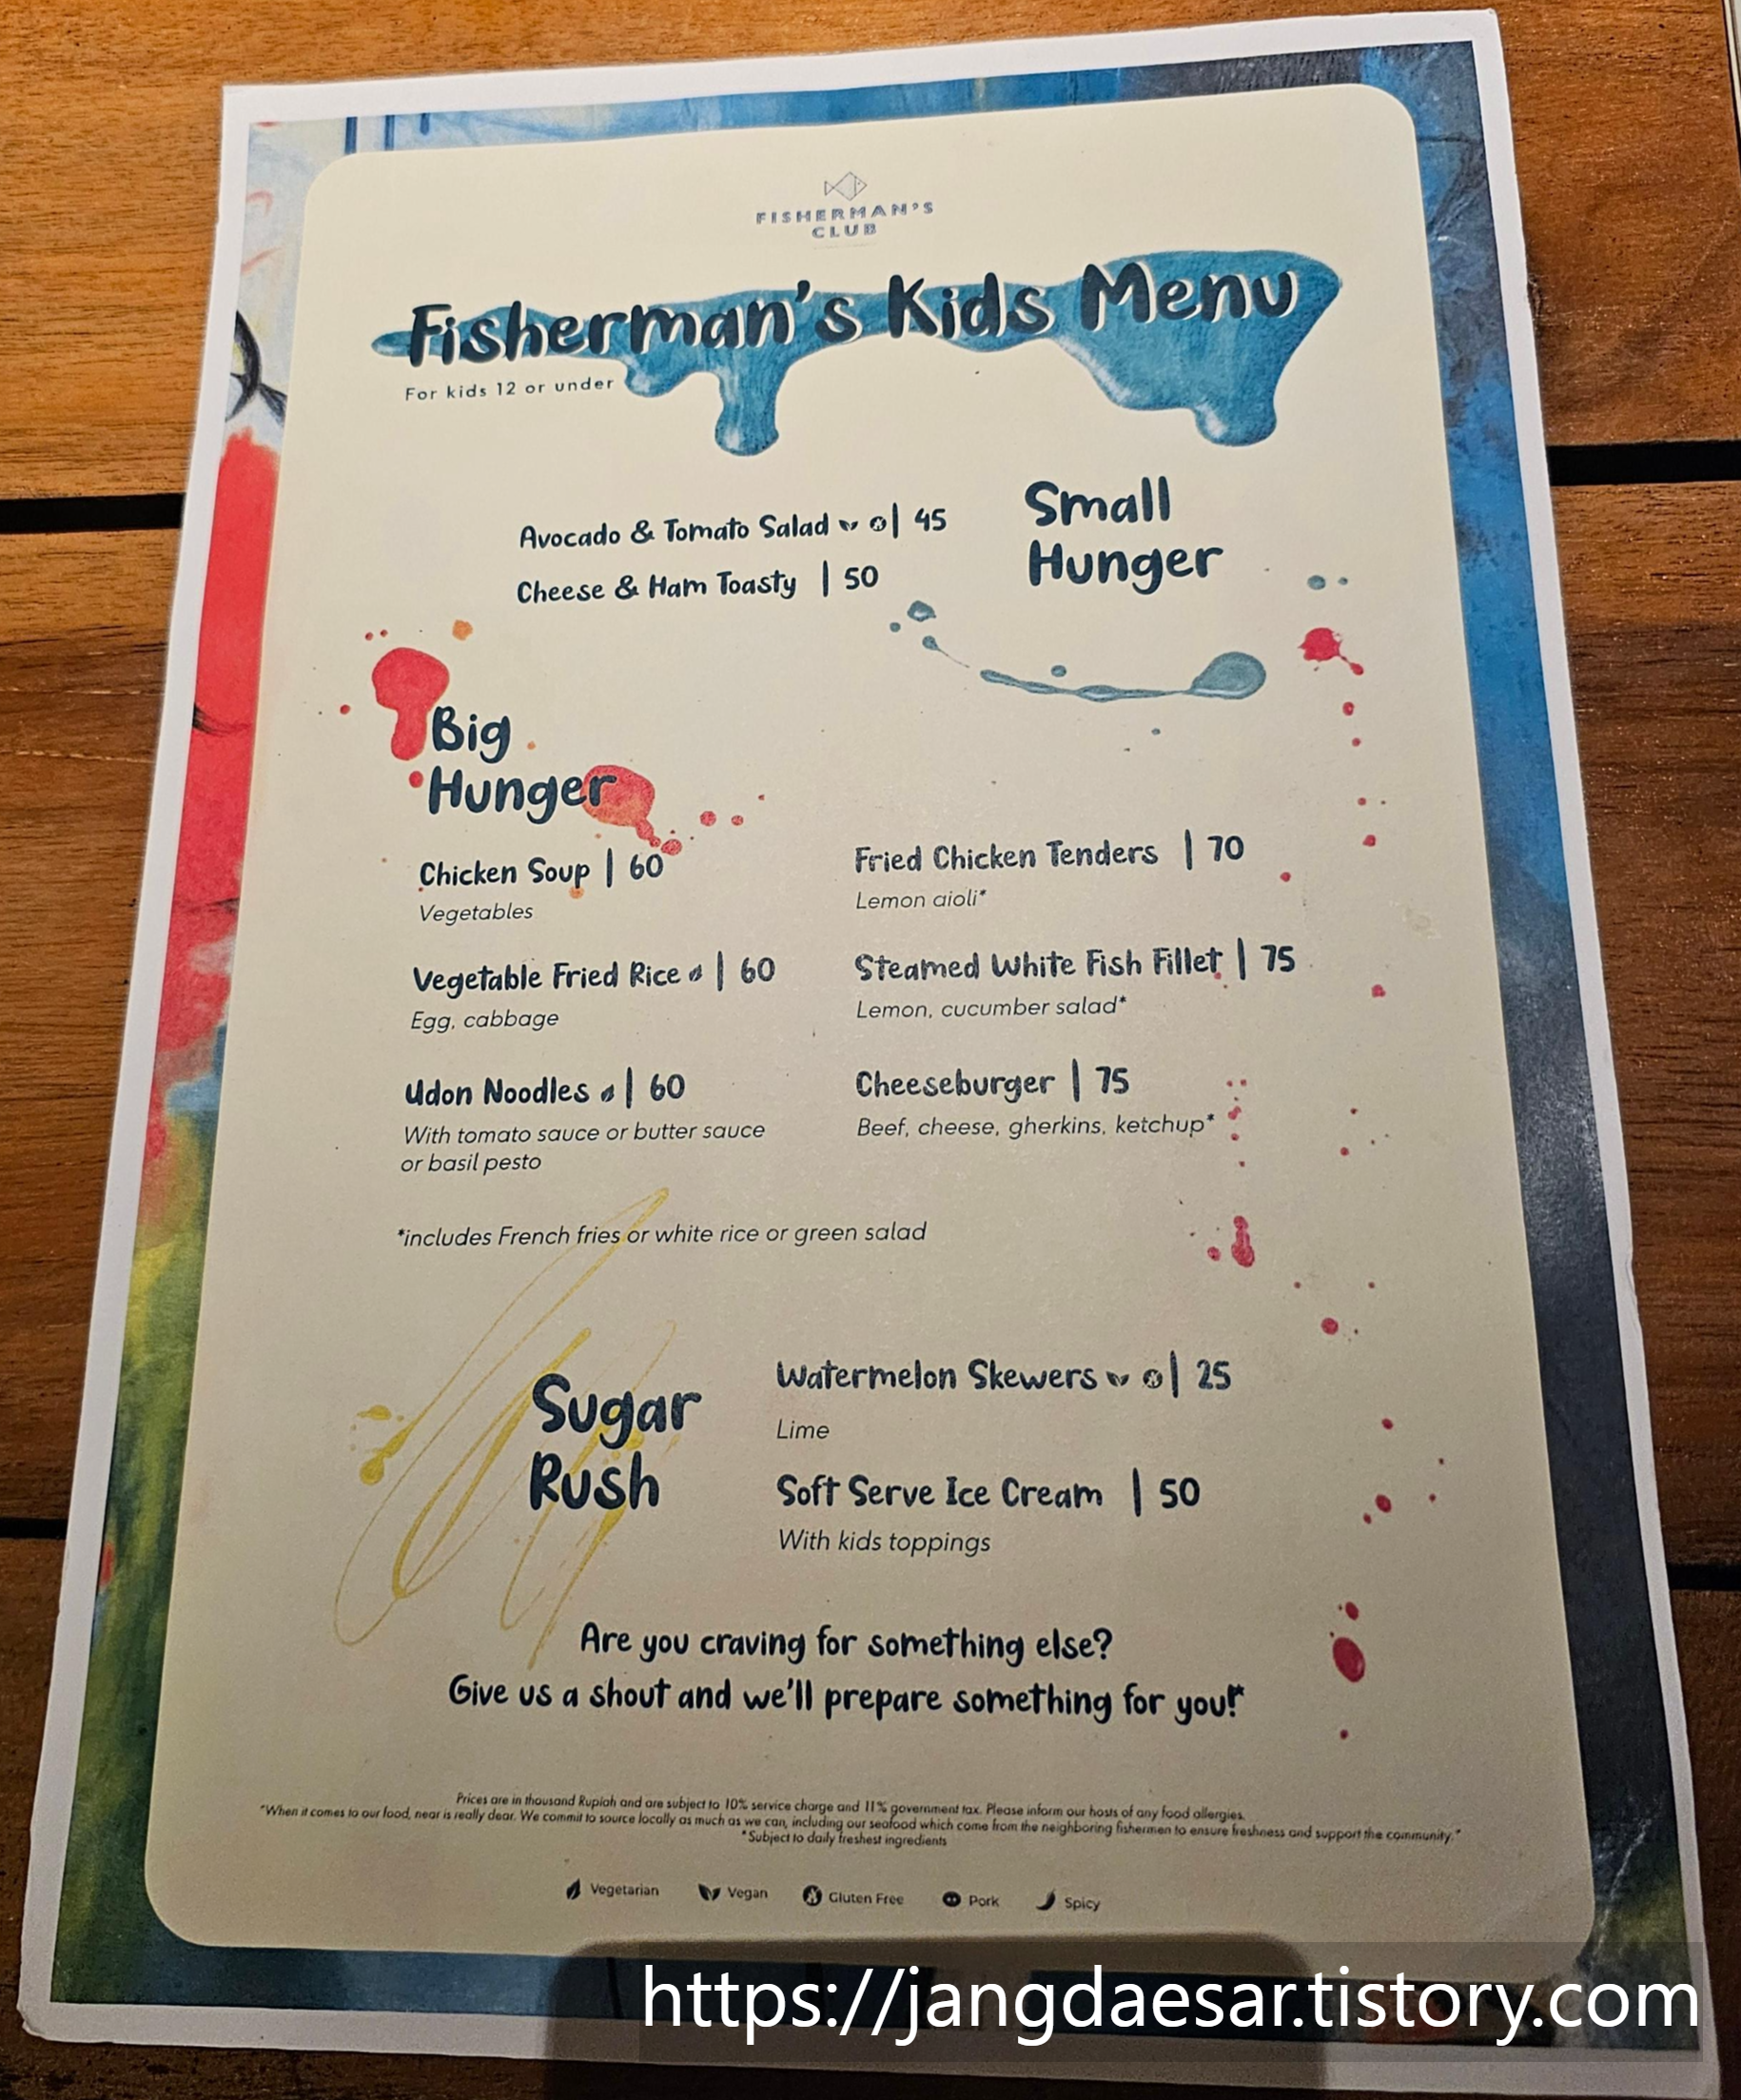 FISHERMAN'S
CLUB
Fisherman's Kids Menu
For kids 12 or under
Small
Hunger
Avocado & Tomato Salad | 45
Cheese & Ham Toasty | 50
Big
Hunger
Chicken Soup | 60
Vegetables
Vegetable Fried Rice | 60
Egg, cabbage
Udon Noodles | 60
With tomato sauce or butter sauce
or basil pesto
Fried Chicken Tenders | 70
Lemon aioli*
Steamed White Fish Fillet | 75
Lemon, cucumber salad*
Cheeseburger | 75
Beef, cheese, gherkins, ketchup*
*includes French fries or white rice or green salad
Sugar
Rush
Watermelon Skewers | 25
Lime
Soft Serve Ice Cream | 50
With kids toppings
Are you craving for something else?
Give us a shout and we'll prepare something for you!*
Prices are in thousand Rupiah and are subject to 10% service charge and 11% government tax. Please inform our hosts of any food allergies.
"When it comes to our food, near is really dear. We commit to source locally as much as we can, including our seafood which come from the neighboring fishermen to ensure freshness and support the community."
*Subject to daily freshest ingredients
Vegetarian Vegan Gluten Free Pork Spicy
https://jangdaesar.tistory.com